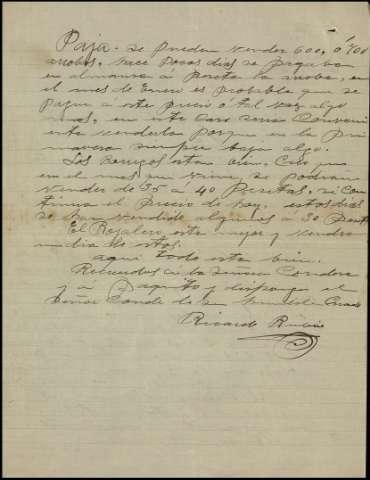 Paja - se pueden vender 600, ó 700
arrobas, hace pocos dias se pagaba
en almansa á peseta la arroba, en
el mes de Enero es probable que se
pague á este precio ó tal vez algo
mas, en este caso sera conveni
ente venderla porque en la pri
mavera siempre baja algo.
Los Borregos estan bien, creo que
en el mes que viene, se podran
vender de 35 á 40 Pesetas, si con
tinua el precio de hoy, estos dias
se han vendido algunos á 30 Peset
El Rosalero esta mejor y vendra
un dia de estos.
aqui todo esta bien.
Recuerdos á la Señora Condesa
y á Paquito y disponga el
Señor Conde de su humilde Criado
Ricardo Rubio